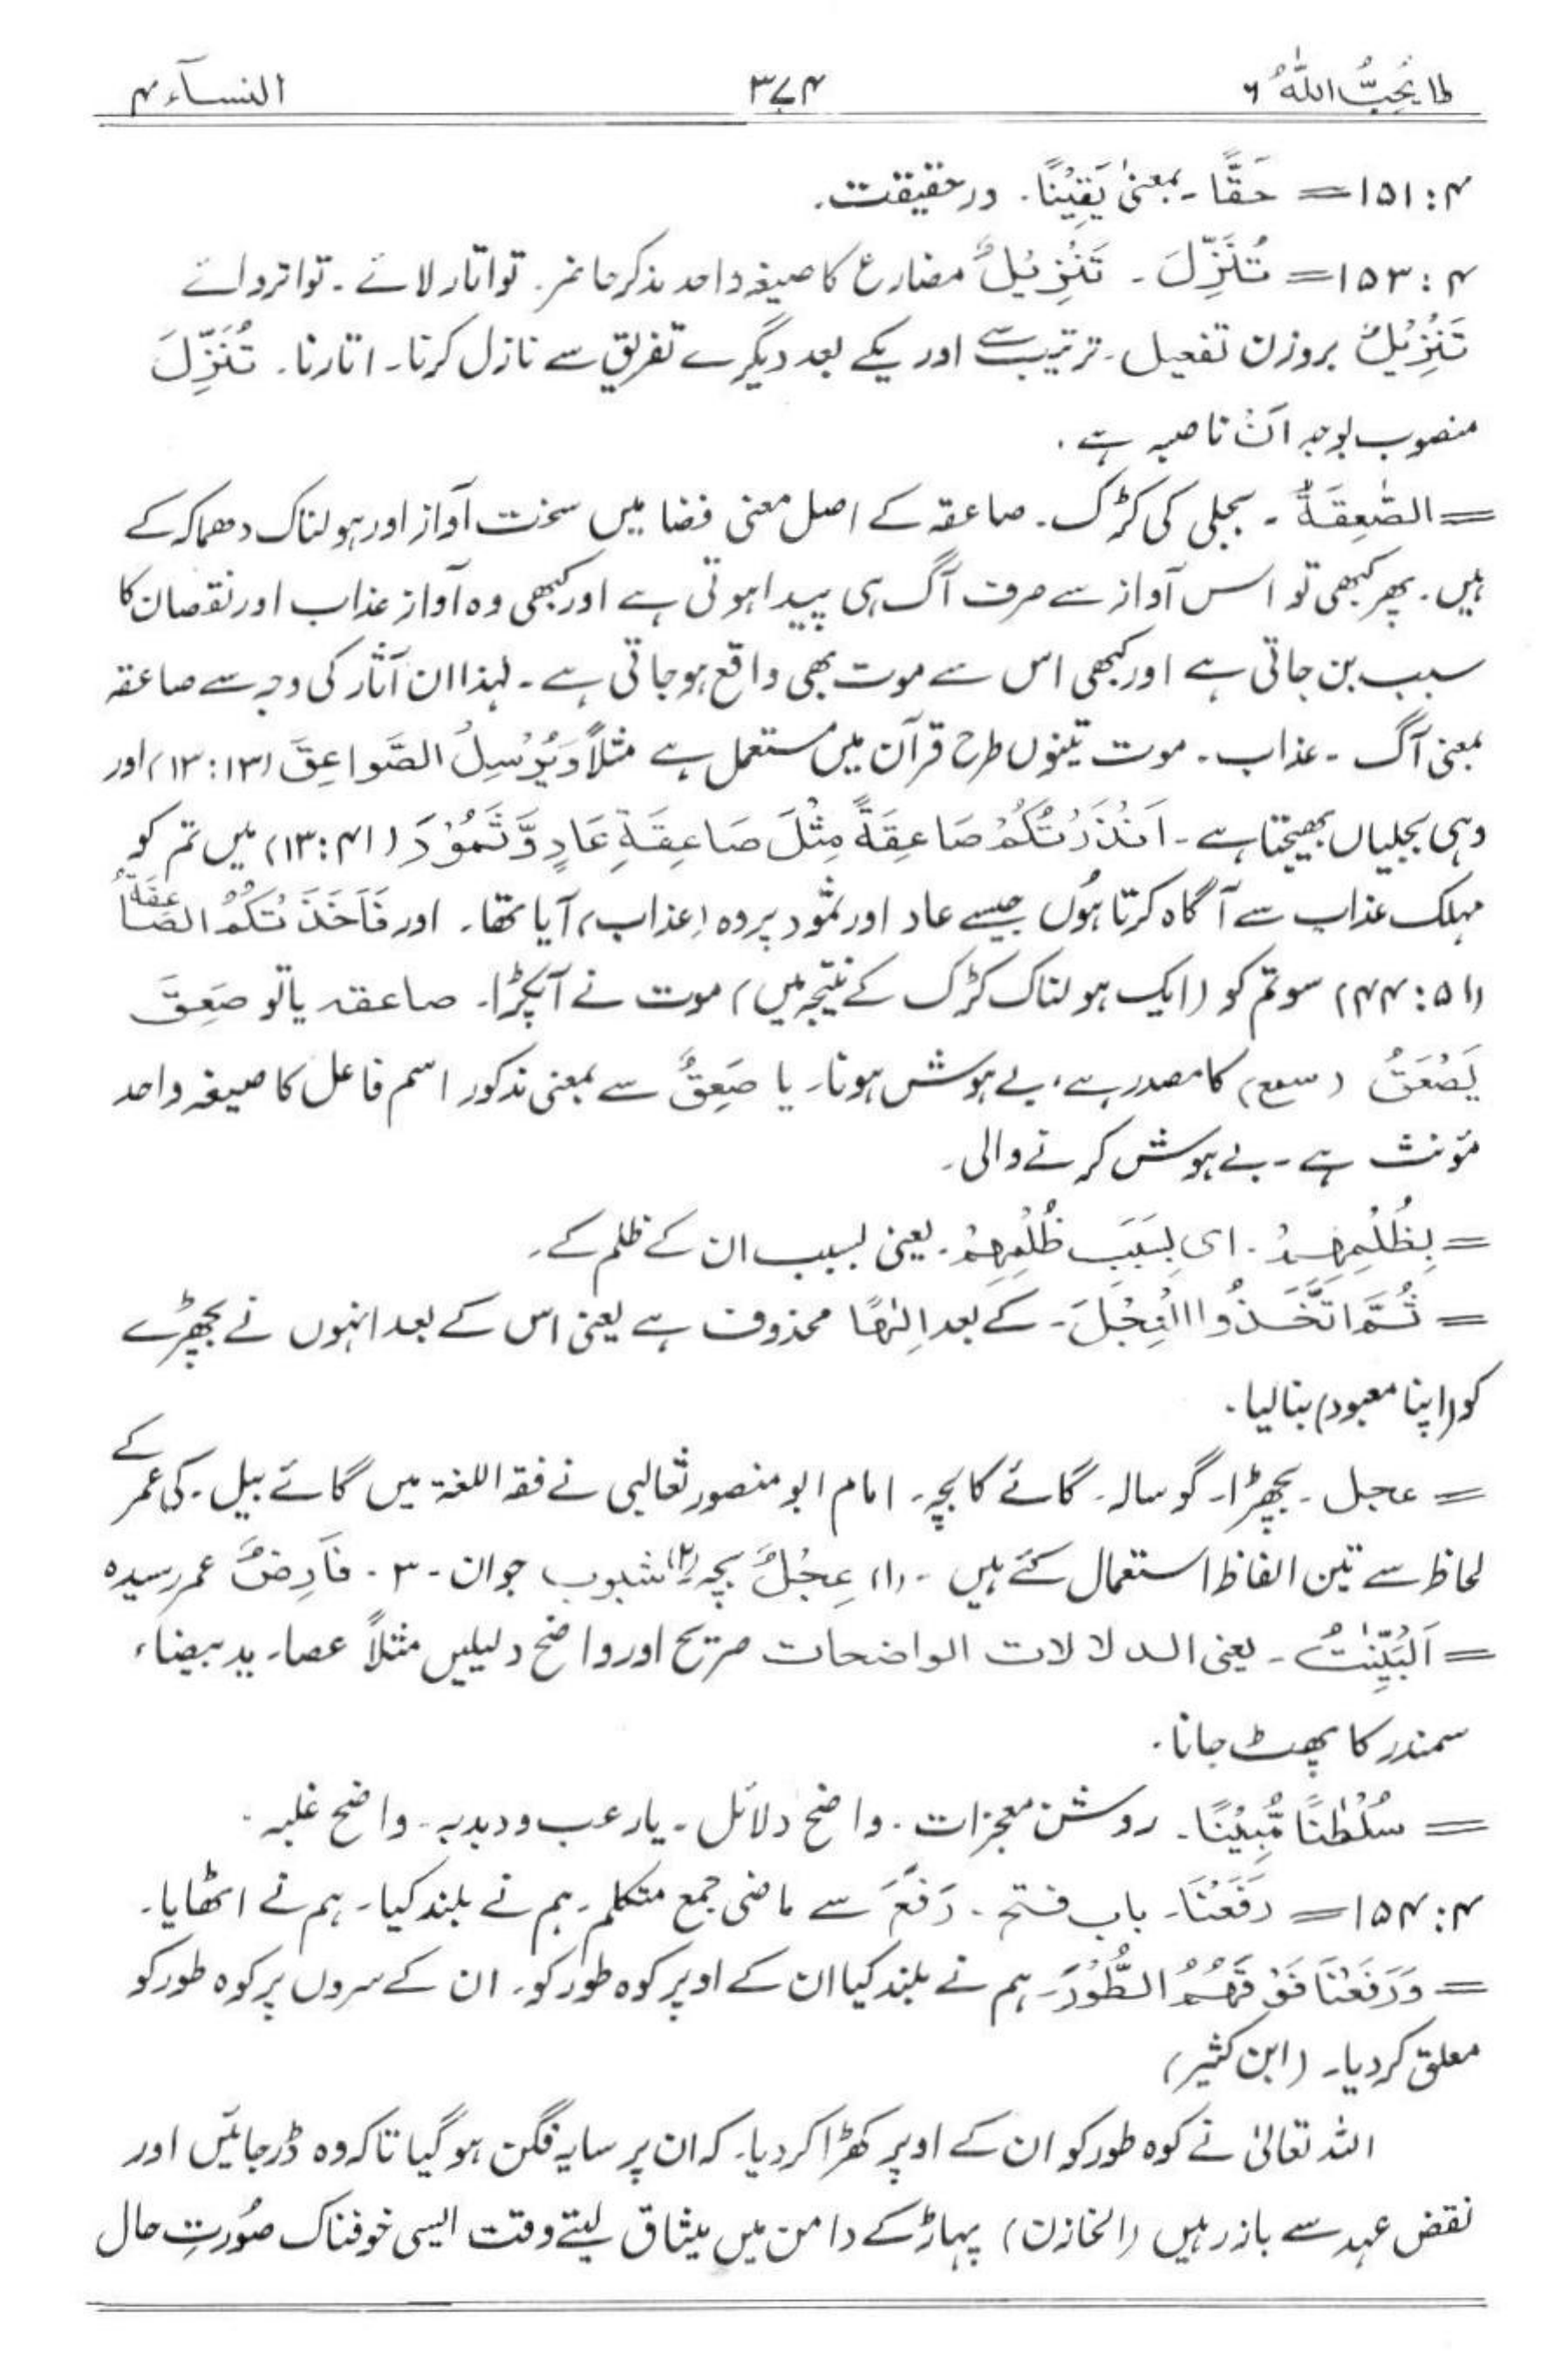 لا یُحِبُّ اللّٰہُ ۶ ۳۷۴ النسآء ۴
۴: ۱۵۱ = حَقًّا۔ بمعنیٰ یَقِیْنًا۔ درحقیقت۔
۴: ۱۵۳ = تُنَزِّلَ۔ تَنْزِیْلٌ مضارع کا صیغہ واحد مذکر حاضر۔ تو اتار لائے۔ تو اتروائے
تَنْزِیْلٌ بروزن تفعیل۔ ترتیب سے اور یکے بعد دیگرے تفریق سے نازل کرنا۔ اتارنا۔ تُنَزِّلَ
منصوب بوجہ اَنْ ناصبہ ہے۔
= الصّٰعِقَۃُ۔ بجلی کی کڑک۔ صاعقہ کے اصل معنی فضا میں سخت آواز اور ہولناک دھماکہ کے
ہیں۔ پھر کبھی تو اس آواز سے صرف آگ ہی پیدا ہوتی ہے اور کبھی وہ آواز عذاب اور نقصان کا
سبب بن جاتی ہے اور کبھی اس سے موت بھی واقع ہو جاتی ہے۔ لہذا ان آثار کی وجہ سے صاعقہ
بمعنی آگ ۔ عذاب ۔ موت تینوں طرح قرآن میں مستعمل ہے مثلاً وَیُرْسِلُ الصَّوَاعِقَ (۱۳:۱۳) اور
وہی بجلیاں بھیجتا ہے۔ اَنْذَرْتُکُمْ صَاعِقَۃً مِّثْلَ صَاعِقَۃِ عَادٍ وَّثَمُوْدَ (۴۱: ۱۳) میں تم کو
مہلک عذاب سے آگاہ کرتا ہُوں جیسے عاد اور ثمود پر وہ (عذاب) آیا تھا۔ اور فَاَخَذَتْکُمُ الصّٰعِقَۃُ
(۵۱: ۴۴) سو تم کو (ایک ہولناک کڑک کے نتیجہ میں) موت نے آپکڑا۔ صاعقہ یا تو صَعِقَ
یَصْعَقُ (سمع) کا مصدر ہے، بے ہوش ہونا۔ یا صَعِقٌ سے بمعنی مذکور اسم فاعل کا صیغہ واحد
مؤنث ہے۔ بے ہوش کرنے والی۔
= بِظُلْمِہِمْ۔ ای بِسَبَبِ ظُلْمِہِمْ۔ یعنی بسبب ان کے ظلم کے۔
= ثُمَّ اتَّخَذُوا الْعِجْلَ۔ کے بعد اِلٰھًا محذوف ہے یعنی اس کے بعد انہوں نے بچھڑے
کو (اپنا معبود) بنا لیا۔
= عجل ۔ بچھڑا۔ گوسالہ۔ گائے کا بچہ۔ امام ابو منصور ثعالبی نے فقہ اللغۃ میں گائے بیل۔ کی عمر کے
لحاظ سے تین الفاظ استعمال کئے ہیں ۔ (۱) عِجْلٌ بچہ (۲) شبوب جوان ۔ ۳ ۔ فَارِضٌ عمر رسیدہ
= اَلْبَیِّنٰتُ ۔ یعنی الدلالات الواضحات صریح اور واضح دلیلیں مثلاً عصا۔ ید بیضاء،
سمندر کا پھٹ جانا۔
= سُلْطٰنًا مُّبِیْنًا۔ روشن معجزات۔ واضح دلائل۔ یا رعب و دبدبہ۔ واضح غلبہ۔
۴: ۱۵۴ = رَفَعْنَا۔ باب فتح ۔ رَفْعٌ سے ماضی جمع متکلم۔ ہم نے بلند کیا۔ ہم نے اٹھایا۔
= وَرَفَعْنَا فَوْقَہُمُ الطُّوْرَ۔ ہم نے بلند کیا ان کے اوپر کوہ طور کو۔ ان کے سروں پر کوہ طور کو
معلق کر دیا۔ (ابن کثیر)
اللہ تعالیٰ نے کوہ طور کو ان کے اوپر کھڑا کر دیا۔ کہ ان پر سایہ فگن ہو گیا تاکہ وہ ڈر جائیں اور
نقض عہد سے باز رہیں (الخازن) پہاڑ کے دامن میں میثاق لیتے وقت ایسی خوفناک صُورتِ حال